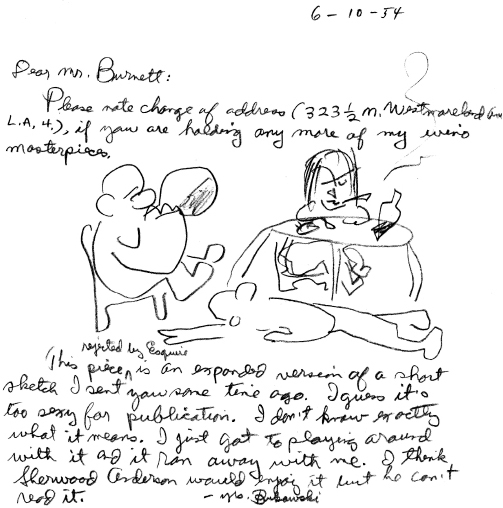 6-10-54
Dear Mr. Burnett:
Please note change of address (323 1/2 N. Westmoreland Ave
L.A. 4.), if you are holding any more of my wino
masterpieces.
rejected by Esquire
This piece, is an expanded version of a short
sketch I sent you some time ago. I guess it's
too sexy for publication. I don't know exactly
what it means. I just got to playing around
with it and it ran away with me. I think
Sherwood Anderson would enjoy it but he can't
read it.
- Bukowski